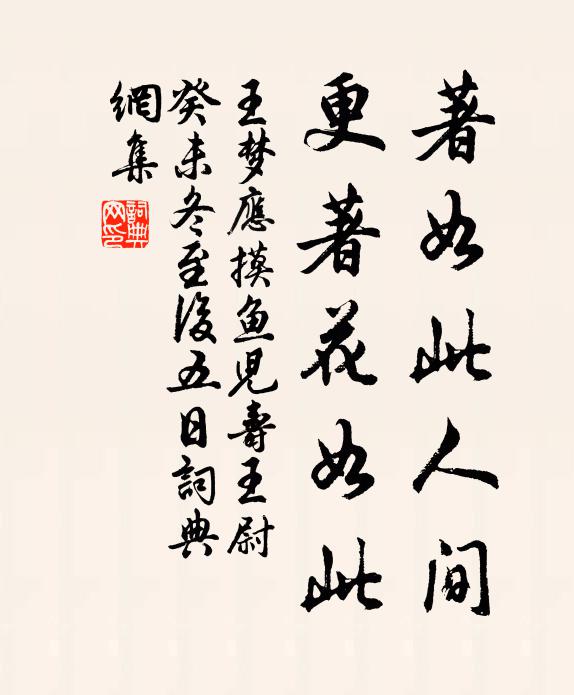 著如此人间
更著花如此
王梦應摸鱼児壽王尉
癸未冬至後五日詞典
網集
詞典
网印